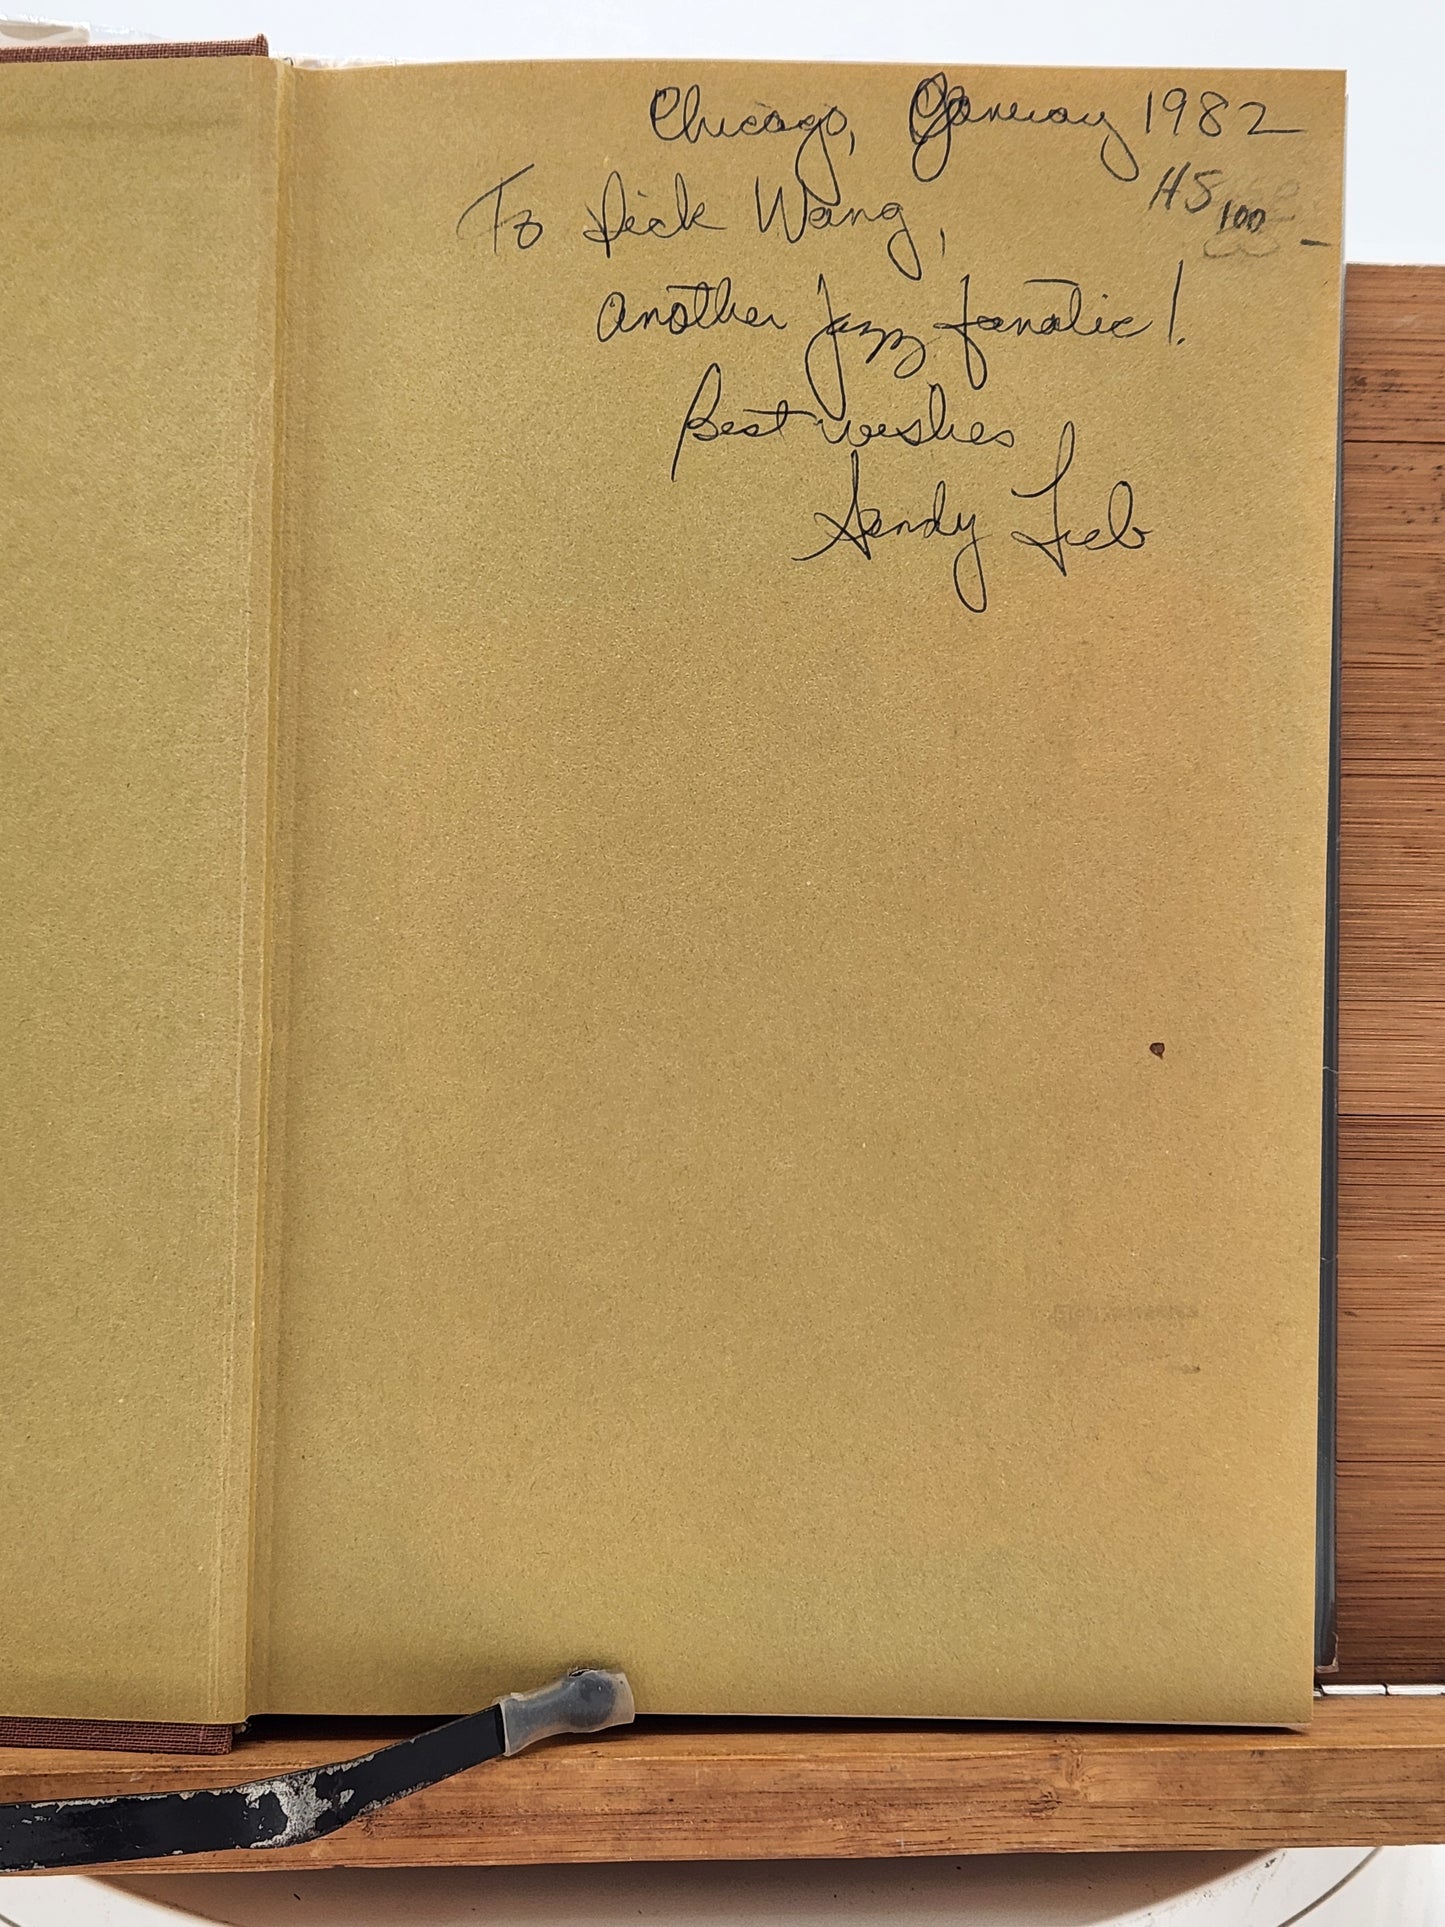 Chicago, January 1982
HS 100 -
To Dick Wang,
another jazz fanatic!
Best wishes
Sandy Lieb